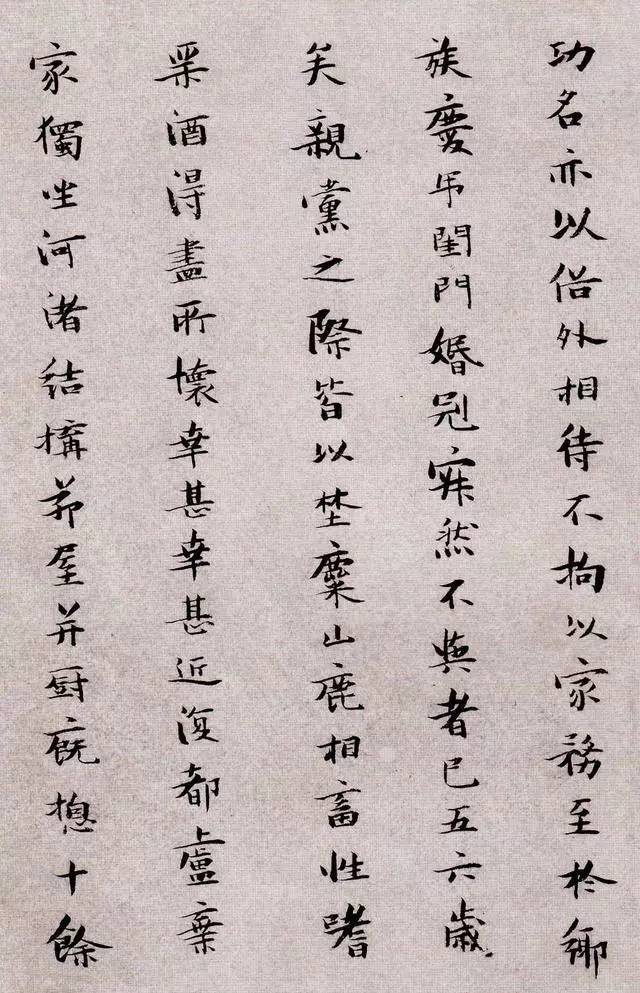 功名亦以俗外相待不拘以家務至於鄉
族慶吊閨門婚冠寂然不與者已五六歲
矣親黨之際皆以埜麋山鹿相畜性嗜
琹酒得盡所懷幸甚幸甚近復都盧棄
家獨坐河渚結構茅屋并厨廐揔十餘